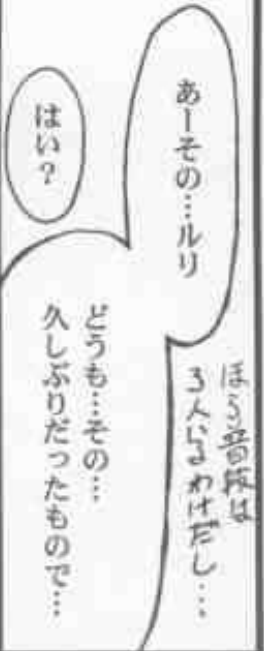 あーその…ルリ
ほら普段は
3人いるわけだし…
はい？
どうも…その…
久しぶりだったもので…